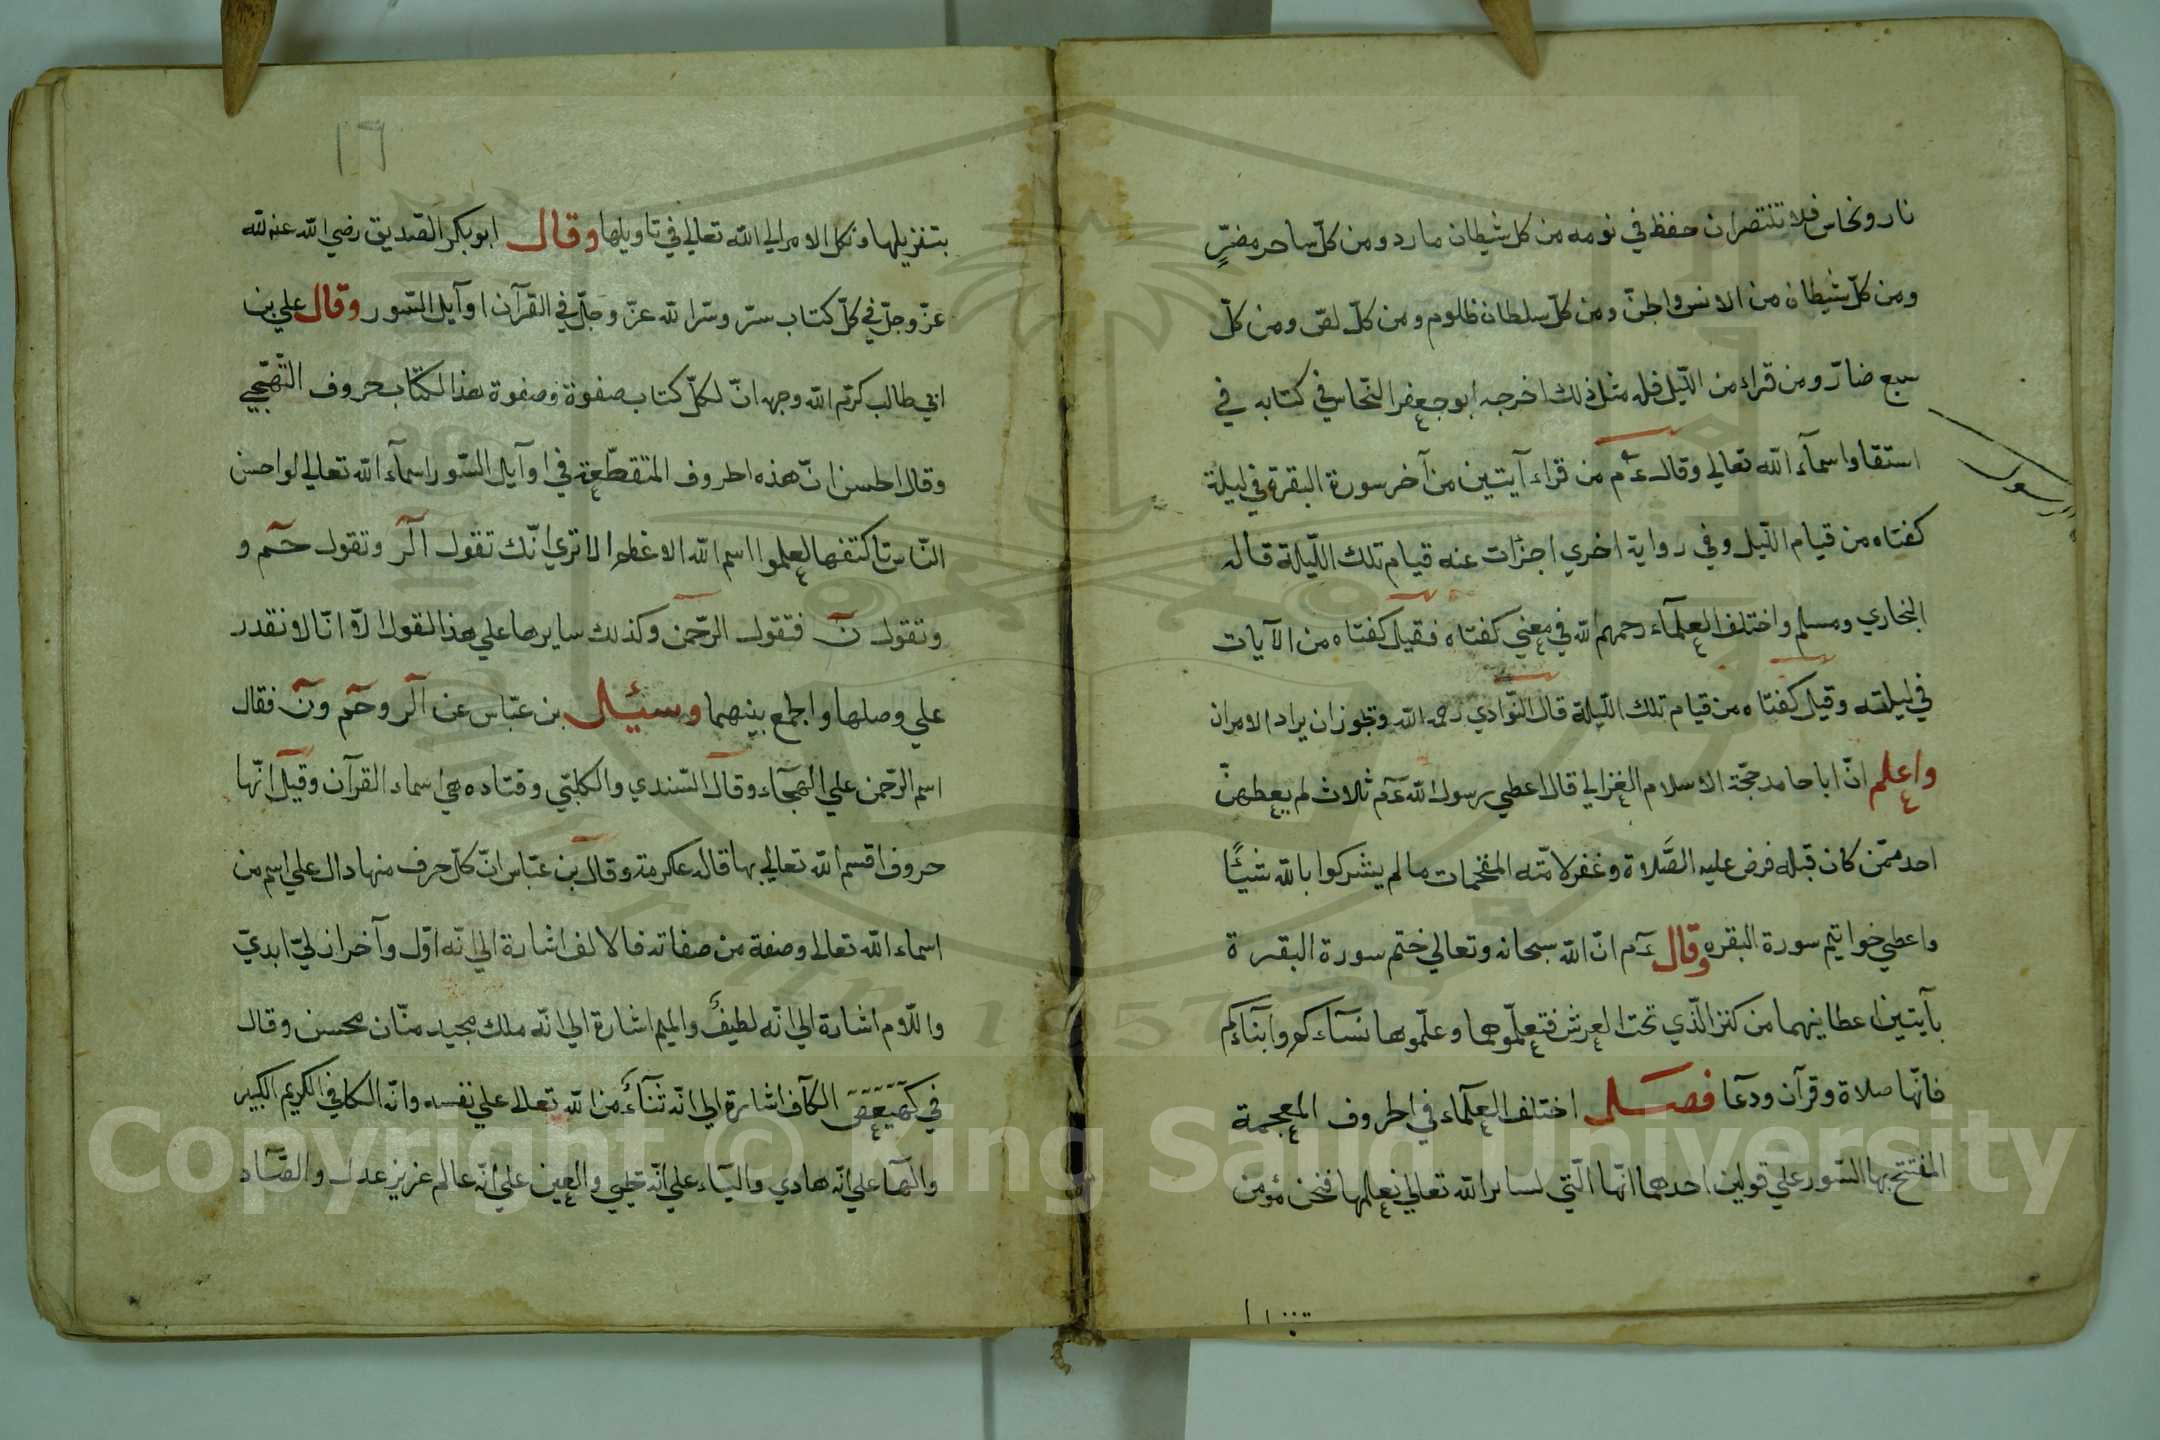 نار ونحاس فلا تنتصران حفظ في نومه من كل شيطان مارد ومن كلّ ساحر مضرٍّ
ومن كلّ شيطان من الانس والجنّ ومن كلّ سلطان ظلوم ومن كلّ لصّ ومن كلّ
سبع ضارّ ومن قراء من اللّيل فله مثل ذلك اخرجه ابو جعفر النّحاس في كتابه في
اسماء الله تعالي وقال عم من قراء آيتين من آخر سورة البقرة في ليلة
كفتاه من قيام اللّيل وفي رواية اخري اجزأت عنه قيام تلك اللّيلة قاله
البخاري ومسلم واختلف العلمآء رحمهم الله في معني كفتاه فقيل كفتاه من الآيات
في ليلته وقيل كفتاه من قيام تلك اللّيلة قال النّوادي رحمه الله وتجوز ان يراد الامران
واعلم انّ ابا حامد حجّة الاسلام الغزالي قال اعطي رسول الله عم ثلاث لم يعطهنّ
احد ممّن كان قبله فرض عليه الصّلاة وغفر لامّته المقحمات ما لم يشركوا بالله شيئًا
واعطي خواتيم سورة البقره وقال عم انّ الله سبحانه وتعالي ختم سورة البقرة
بآيتين اعطانيهما من كنز الّذي تحت العرش فتعلّموهما وعلّموها نسآءكم وابنآءكم
فانّها صلاة وقرآن ودعآ فصل اختلف العلمآء في الحروف المعجمة
المفتتح بها السّور علي قولين احدهما انّها الّتي لسائر الله تعالي نعلمها فنحن نؤمن
١٦
بتنزيلها ونكل الامر الي الله تعالي في تاويلها وقال ابو بكر الصّديق رضي الله عنه لله
عزّ وجلّ في كلّ كتاب سرّ وسرّ الله عزّ وجلّ في القرآن اوآيل السّور وقال علي بن
ابي طالب كرّم الله وجهه انّ لكلّ كتاب صفوة وصفوة هذا الكتاب حروف التّهجّي
وقال الحسن انّ هذه الحروف المتقطّعة في اوآيل السّور اسمآء الله تعالي لو احسن
النّاس تاليفها لعلموا اسم الله الاعظم الا تري انّك تقول الٓر وتقول حٓم و
وتقول نٓ فتقول الرّحمن وكذلك سايرها علي هذا القول الّا انّا لا نقدر
علي وصلها والجمع بينهما وسئيل بن عبّاس عن الٓر وحٓم ونٓ فقال
اسم الرّحمن علي الهجآء وقال السّندي والكلبّي وقتاده هي اسماء القرآن وقيل انّها
حروف اقسم الله تعالي بها قاله عكرمة وقال بن عبّاس انّ كلّ حرف منها دال علي اسم من
اسماء الله تعالي وصفة من صفاته فالالف اشارة الي انّه اوّل وآخر ازليّ ابديّ
واللّام اشارة الي انّه لطيفٌ والميم اشارة الي انّه ملك مجيد منّان محسن وقال
في كٓهٓيٓعٓصٓ الكآف اشارة الي انّه ثنآءٌ من الله تعالي علي نفسه وانّه الكافي الكريم الكبير
والهآ علي انّه هادي واليآء علي انّه والعين علي انّه عالم عزيز عدل والصّآد